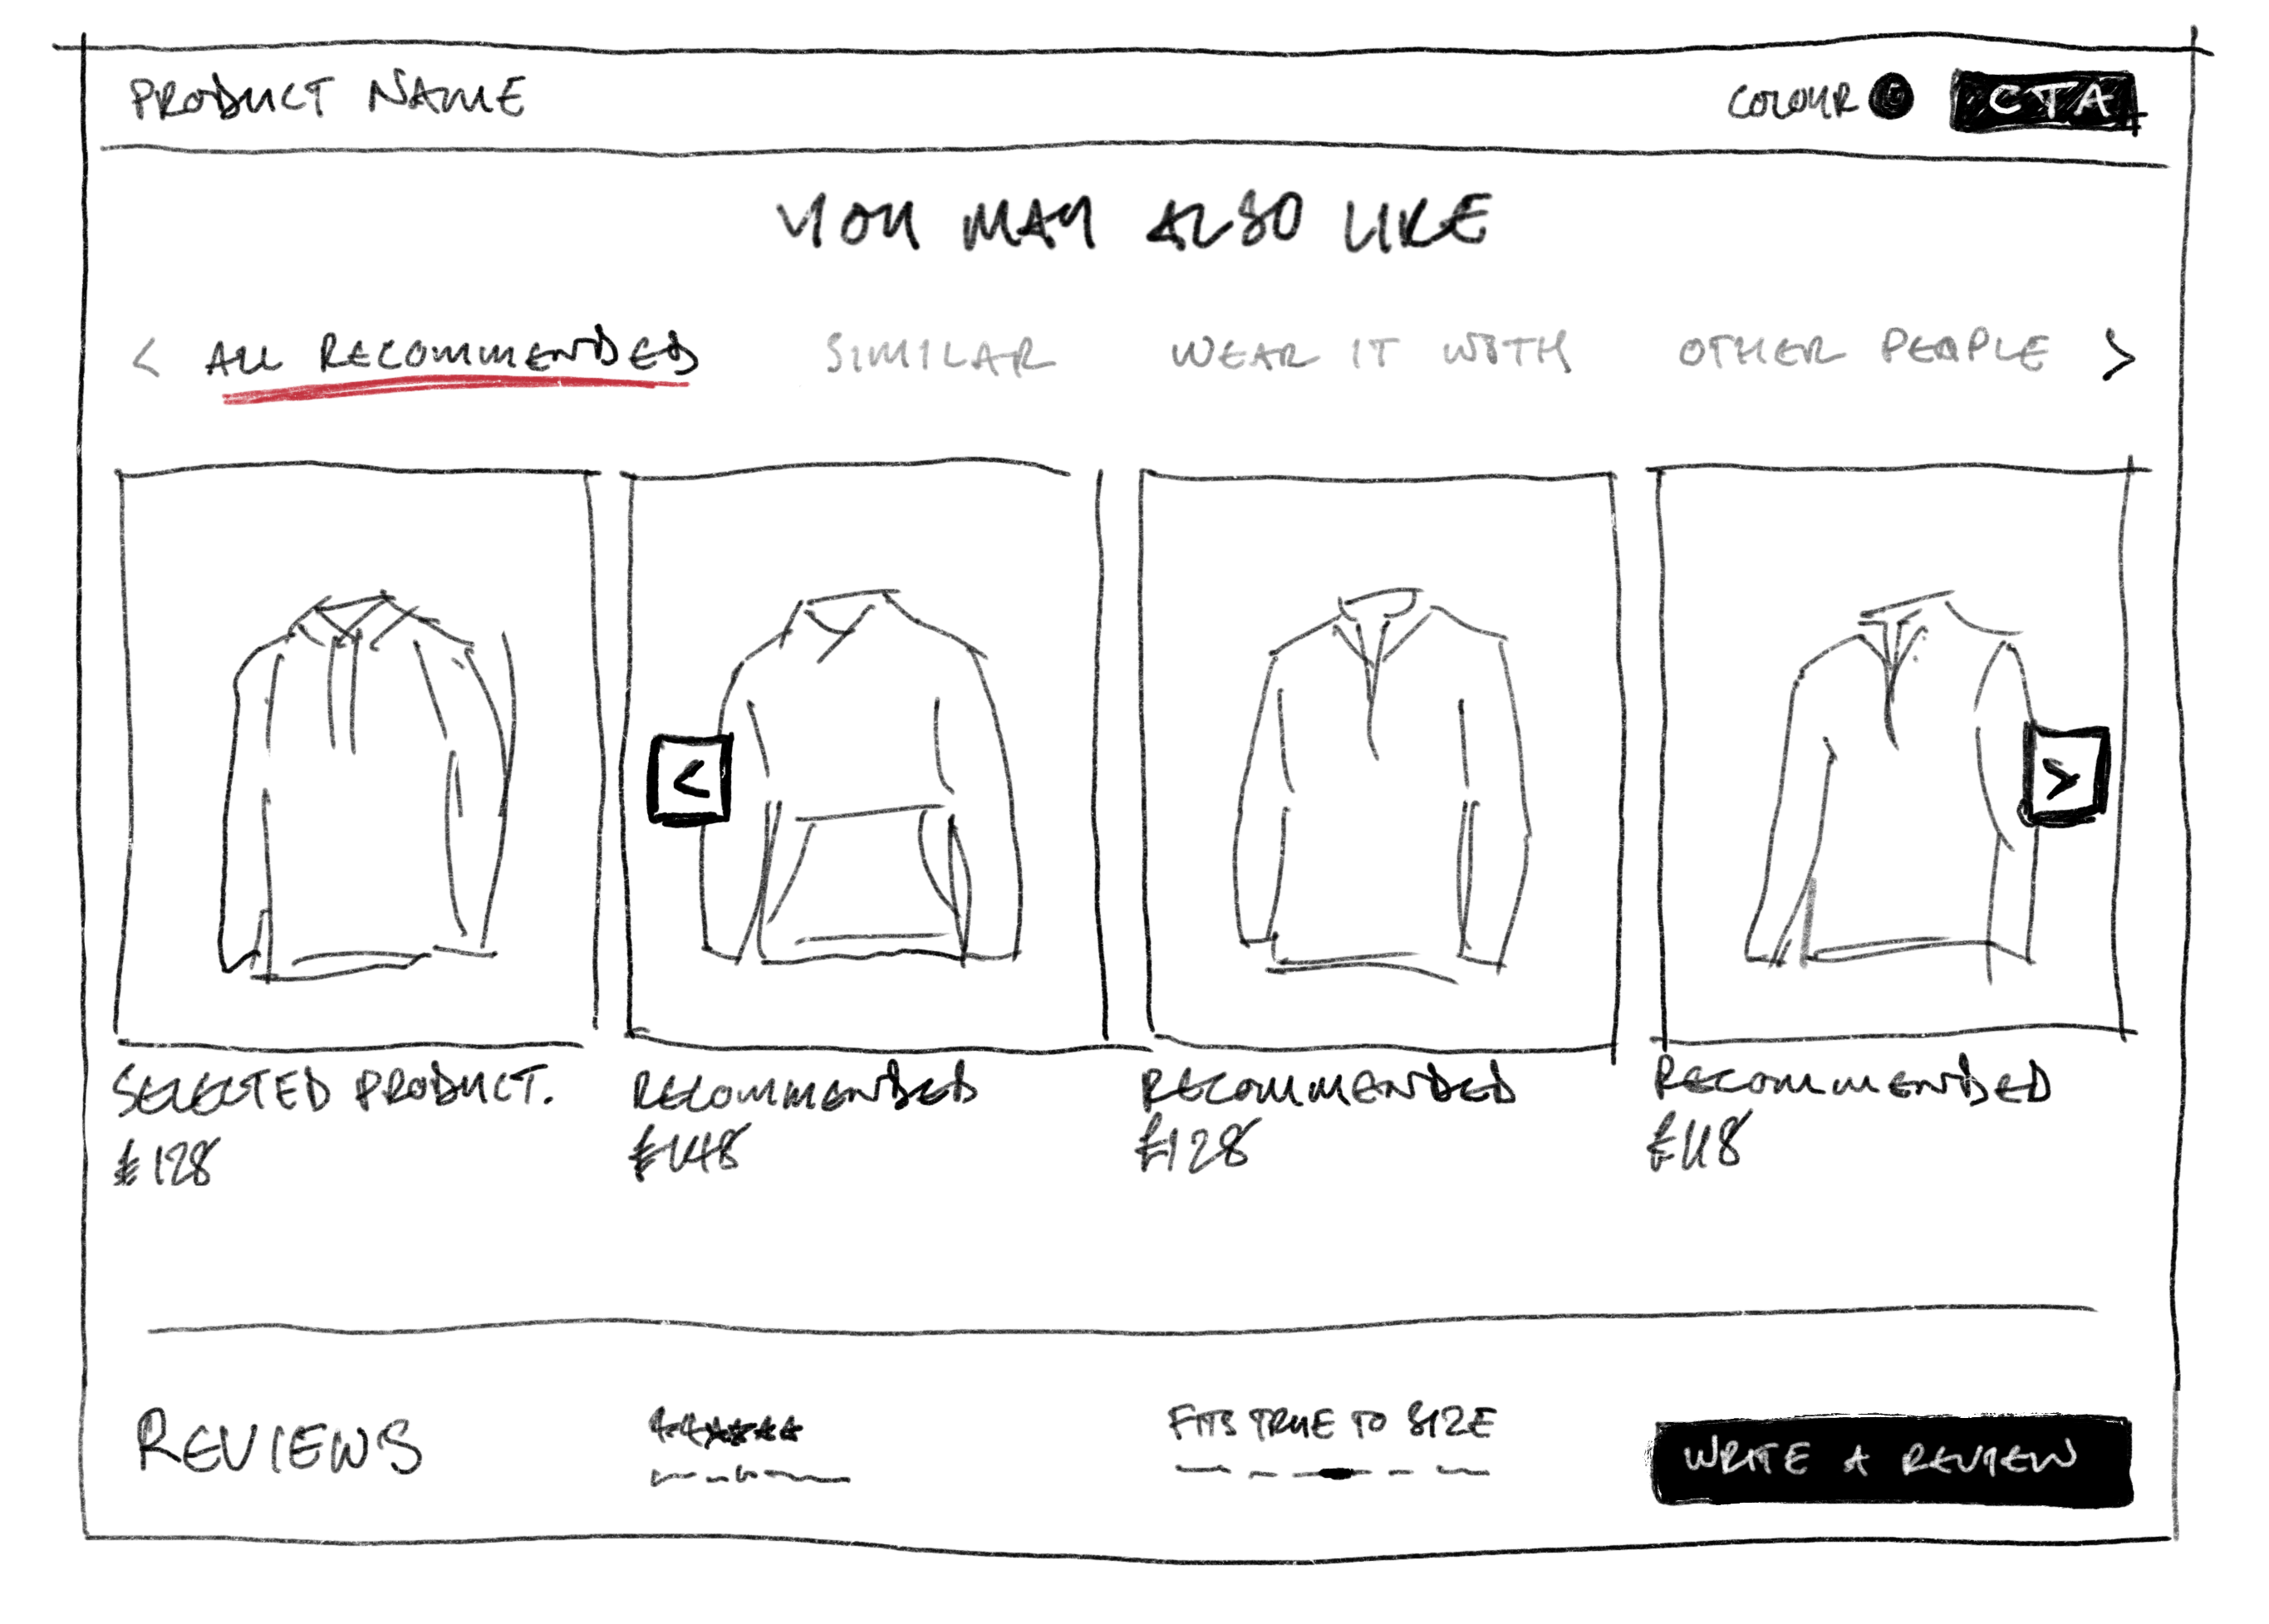 PRODUCT NAME
COLOUR
CTA
YOU MAY ALSO LIKE
< ALL RECOMMENDED SIMILAR WEAR IT WITH OTHER PEOPLE >
< >
SELECTED PRODUCT.
£128
RECOMMENDED
£148
RECOMMENDED
£128
RECOMMENDED
£118
REVIEWS
FITS TRUE TO SIZE
WRITE A REVIEW